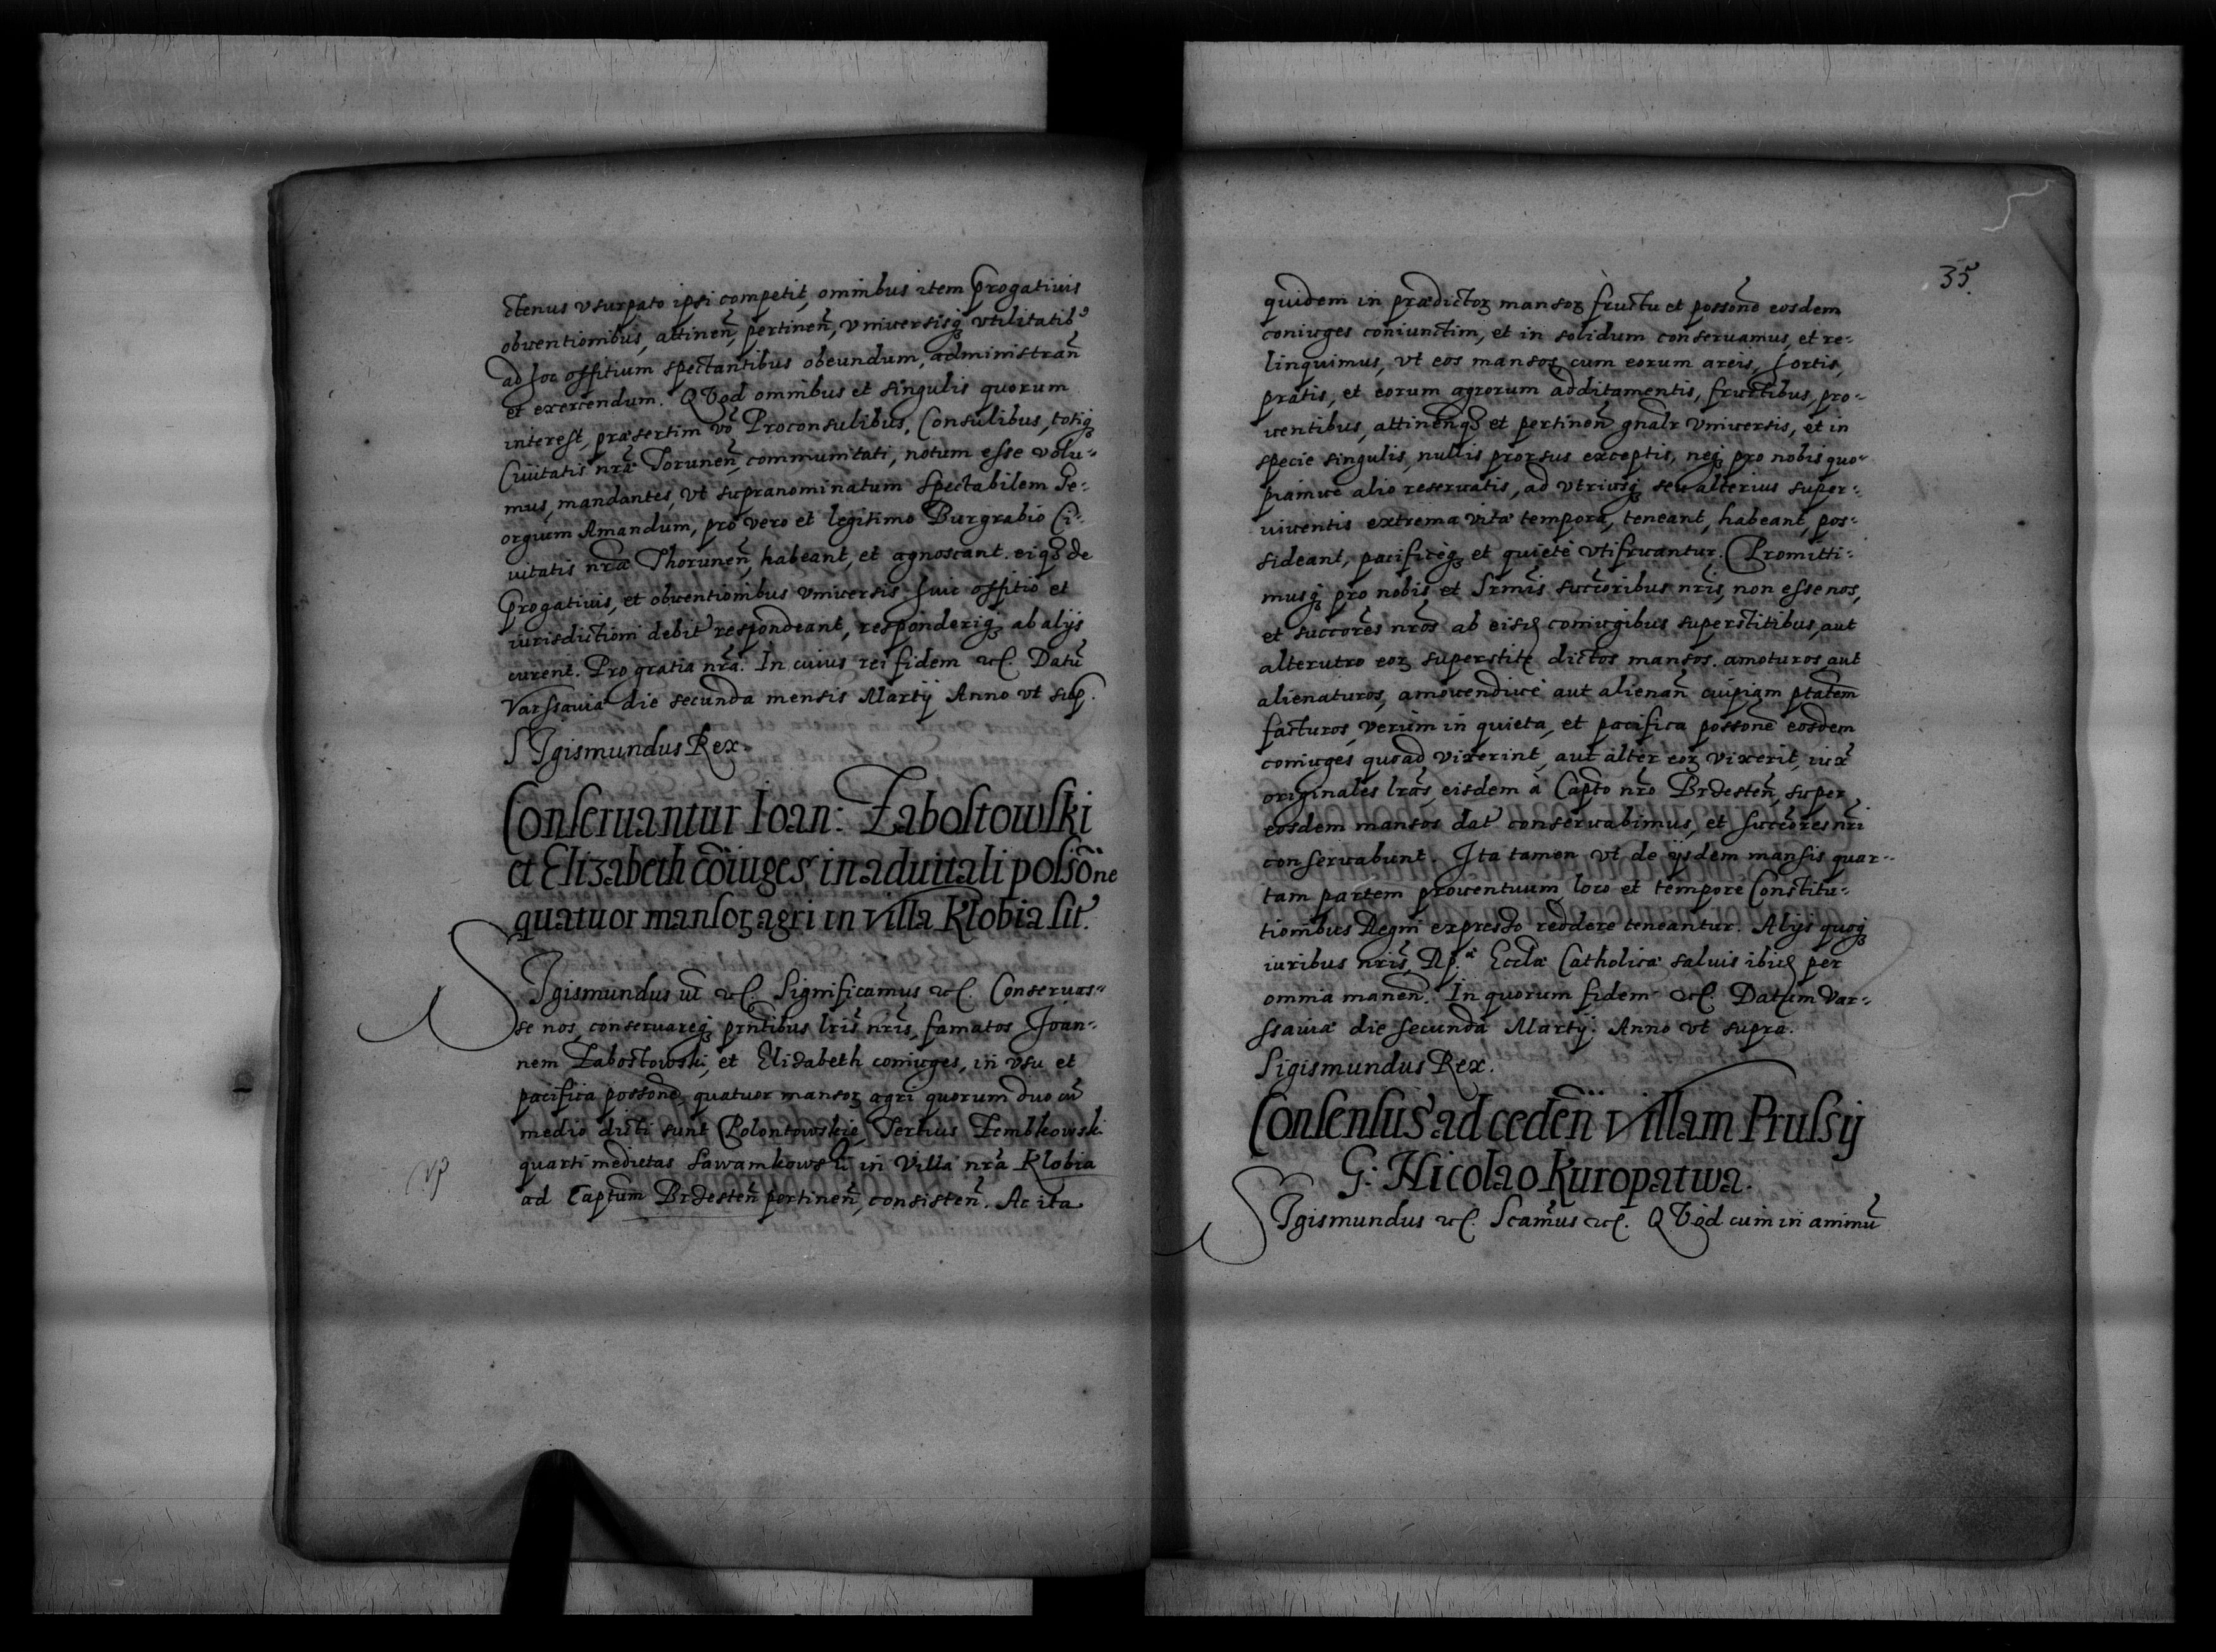 ctenus vsurpato ipsi competit, omnibus item progatiuis
obuentionibus, attinen̄, pertinen̄, vniuersisq; vtilitatib9
ad hoc offitium spectantibus obeundum, administran̄
et exercendum. QVod omnibus et singulis quorum
interest, præsertim vō Proconsulibus, Consulibus, totiq;
Ciuitatis nræ Torunen̄, communitati, notum esse volu-
mus, mandantes, vt supranominatum Spectabilem Ge-
orgium Amandum, pro vero et legitimo Burgrabio Ci-
uitatis nræ Thorunen̄, habeant, et agnoscant. eiq; de
progatiuis, et obuentionibus vniuersis huic offitio et
iurisdictioni debit̄ respondeant, responderiq; ab alijs
curent. Pro gratia nrā. In cuius rei fidem etc. Datū
Varssauiæ die secunda mensis Martij Anno vt sup.
SIgismundus Rex.
Conseruantur Ioan: Zabostowski
et Elizabeth cōiuges in aduitali possōne
quatuor mansoꝝ agri in villa Klobia sit̄.
SIgismundus iii etc. Significamus etc. Conseruas-
se nos, conseruareq; prntibus lris nris, famatos Joan-
nem Zabostowski, et Elisabeth coniuges, in vsu et
pacifica possone quatuor mansoꝝ agri quorum duo cū
medio dicti sunt Polontowskie, Tertius Zembkowski
quarti medietas Sawamkowski in Villa nrā Klobia
ad Captum Brdesten̄ pertinen̄, consisten̄. Ac ita
35.
quidem in prædictoꝝ mansoꝝ fructu et possone eosdem
coniuges coniunctim, et in solidum conseruamus, et re-
linquimus, vt eos mansos, cum eorum areis, hortis,
pratis, et eorum agrorum additamentis, fructibus, pro-
uentibus, attinenq; et pertinen̄ gnalr vniuersis, et in
specie singulis, nullis prorsus exceptis, neq; pro nobis quo-
piamue alio reseruatis, ad vtriusq; seu alterius super-
uiuentis extrema vitæ tempora, teneant, habeant, pos-
sideant, pacificèq; et quietè vtifruantur. Promitti-
musq; pro nobis et Srmis successoribus nris, non esse nos,
et succores nros ab eisd coniugibus superstitibus, aut
alterutro eoꝝ superstite dictos mansos. amoturos, aut
alienaturos, amouendiue aut alienan̄ cuipiam ptatem
facturos, verùm in quieta, et pacifica possone eosdem
coniuges quoad vixerint, aut alter eoꝝ vixerit, iux̄
originales lras, eisdem à Capto nro Brdesten̄, super
eosdem mansos dat̄ conseruabimus, et succores nri
conseruabunt. Ita tamen vt de ijsdem mansis quar-
tam partem prouentuum loco et tempore Constitu-
tionibus Regni expresso reddere teneantur. Alijs quoq;
iuribus nris, Rp.æ Ecclæ Catholicæ saluis ibid per
omnia manen̄. In quorum fidem etc. Datum Var-
ssauiæ die secunda Martij. Anno vt supra.
Sigismundus Rex.
Consensus ad ceden̄ Villam Prussij
G: Nicolao Kuropatwa.
SIgismundus etc. Scamus etc. QVod cum in animū